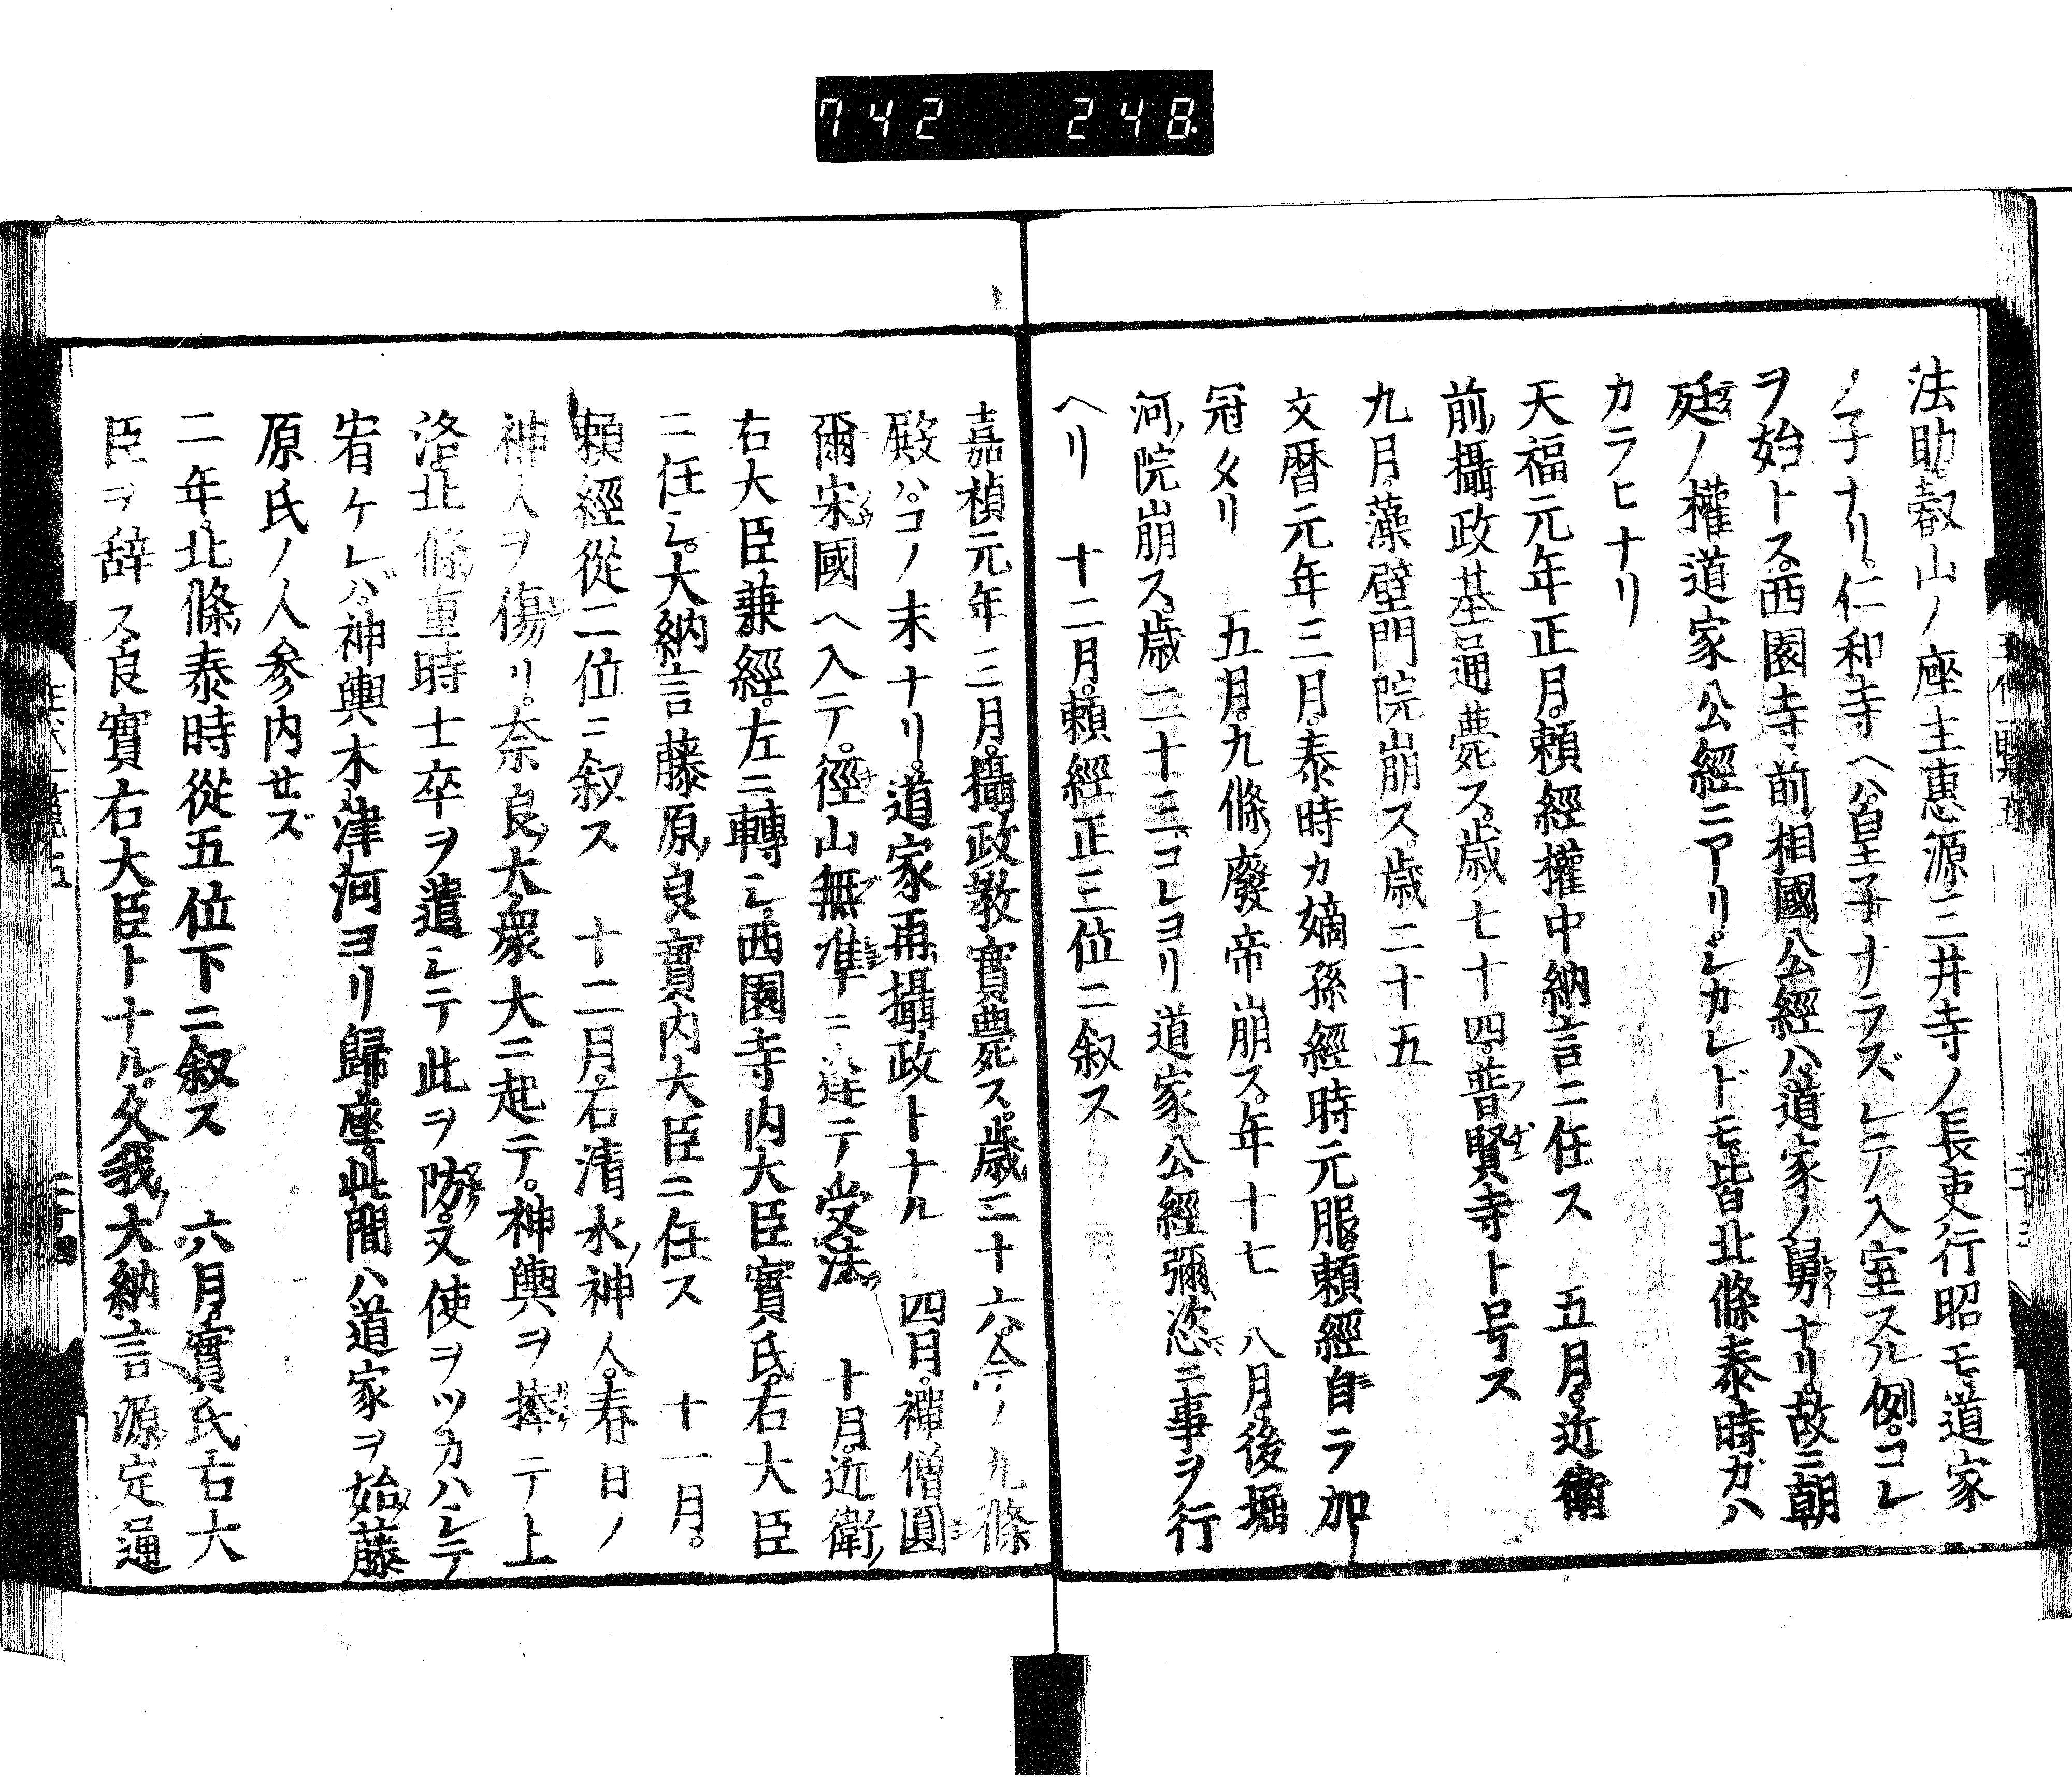 742 248
法助叡山ノ座主惠源三井寺ノ長吏行昭モ道家
ノ子ナリ仁和寺ヘハ皇子ナラズシテ入室スル例コレ
ヲ始トス西園寺前相國公經ハ道家ノ舅ナリ故ニ朝
廷ノ權道家公經ニアリシカレドモ皆北條泰時ガハ
カラヒナリ
天福元年正月賴經權中納言ニ任ス 五月近衛
前攝政基通薨ス歳七十四普賢寺ト号ス
九月藻壁門院崩ス歳二十五
文暦元年三月泰時カ嫡孫經時元服賴經自ラ加
冠メリ 五月九條廢帝崩ス年十七 八月後堀
河院崩ス歳二十三コレヨリ道家公經彌恣ニ事ヲ行
ヘリ 十二月賴經正三位ニ叙ス
嘉禎元年三月攝政教實薨ス歳二十六今ノ九條
殿ハコノ末ナリ道家再攝政トナル 四月禪僧圓
爾宋國ヘ入テ徑山無準ニ逢テ受法 十月近衛
右大臣兼經左ニ轉シ西園寺内大臣實氏右大臣
ニ任シ大納言藤原良實内大臣ニ任ス 十一月
賴經從二位ニ叙ス 十二月石清水神人春日ノ
神人ヲ傷リ奈良大衆大ニ起テ神輿ヲ捧テ上
洛北條重時士卒ヲ遣シテ此ヲ防又使ヲツカハシテ
宥ケレバ神輿木津河ヨリ歸座此間ハ道家ヲ始藤
原氏ノ人参内セズ
二年北條泰時從五位下ニ叙ス 六月實氏右大
臣ヲ辞ス良實右大臣トナル久我大納言源定通